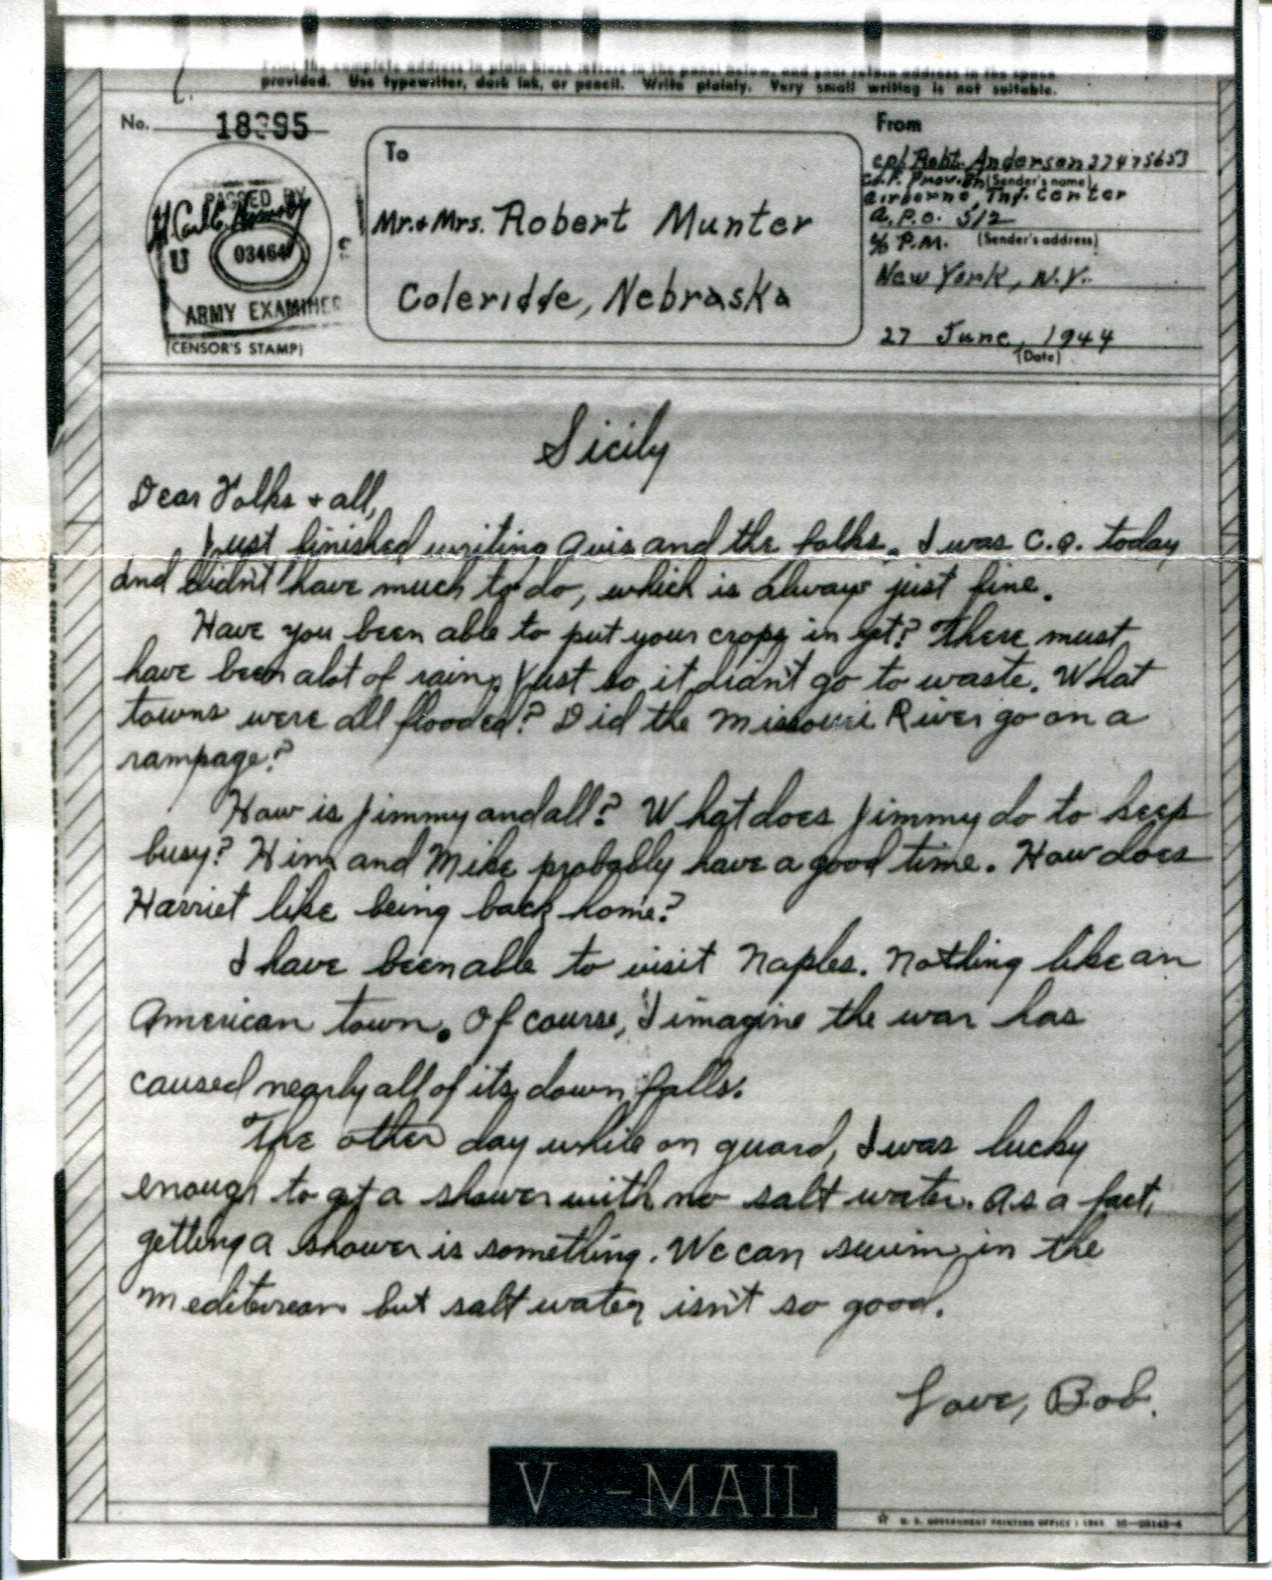 Print the complete address in plain block letters in the panel below, and your return address in the space
provided. Use typewriter, dark ink, or pencil. Write plainly. Very small writing is not suitable.
No. 18395
PASSED BY
U
03464
ARMY EXAMINER
(CENSOR'S STAMP)
To
Mr. & Mrs. Robert Munter
Coleridge, Nebraska
From
cpl Robt. Anderson 37475653
(Sender's name)
Co. P. Prov. Bn
Airborne Tng. Center
A.P.O. 512
(Sender's address)
c/o P.M.
New York, N.Y.
27 June, 1944
(Date)
Sicily
Dear Folks & all,
Just finished writing Avis and the folks. I was C.Q. today
and didn't have much to do, which is always just fine.
Have you been able to put your crops in yet? There must
have been alot of rain. Just so it didn't go to waste. What
towns were all flooded? Did the Missouri River go on a
rampage?
How is Jimmy and all? What does Jimmy do to keep
busy? Him and Mike probably have a good time. How does
Harriet like being back home?
I have been able to visit Naples. Nothing like an
American town. Of course, I imagine the war has
caused nearly all of its down falls.
The other day while on guard, I was lucky
enough to get a shower with no salt water. As a fact,
getting a shower is something. We can swim in the
Mediterean but salt water isn't so good.
Love, Bob.
V···—MAIL
U. S. GOVERNMENT PRINTING OFFICE : 1943